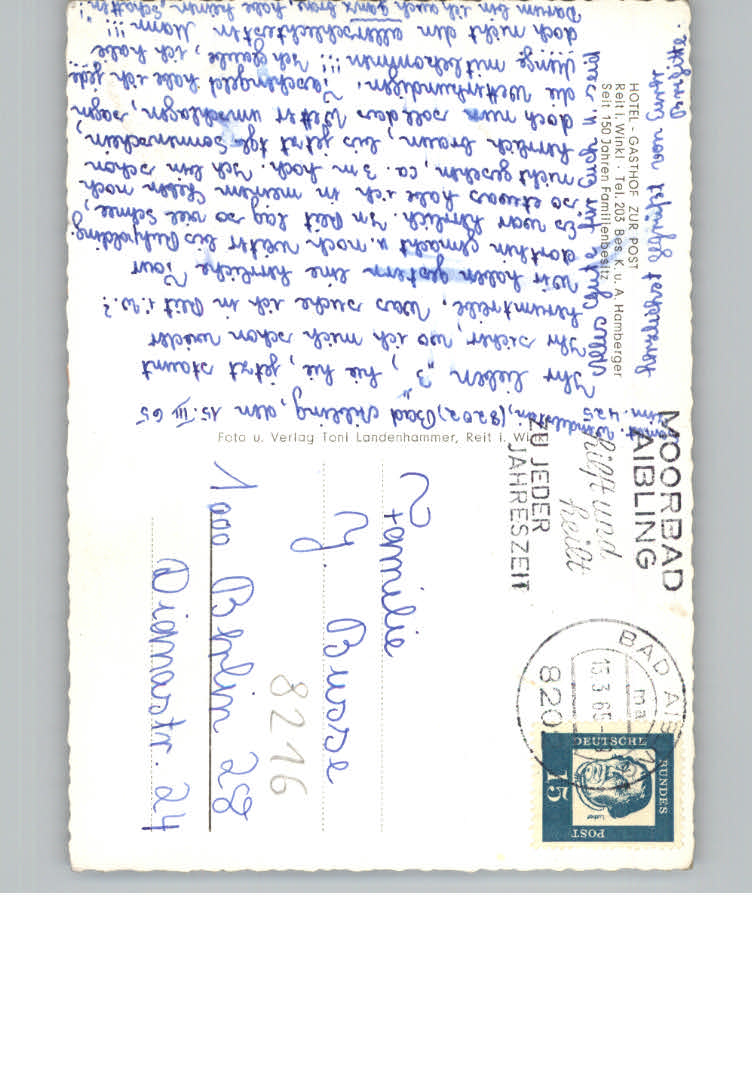 Zimmt. 425
Wendelstein, (8202) Bad Aibling, den 15. III 65
Ihr lieben „3“, hie hie, jetzt staunt
Ihr sicher, wo ich mich schon wieder
herumtreibe. Was suche ich in Reit i. W.?
Wir haben gestern eine herrliche Tour
dorthin gemacht u. noch weiter bis Ruhpolding.
Es war herrlich. In Reit lag so viel Schnee,
so etwas habe ich in meinem Leben noch
nicht gesehen, ca. 3 m. hoch. Ich bin schon
herrlich braun, bis jetzt tgl. Sonnenschein,
doch nun soll das Wetter umschlagen, sagen
die Wetterkundigen. Taschengeld habe ich jede
Menge mitbekommen!!! Ich glaube, ich habe
doch nicht den allerschlechtesten Mann!!!
Darum bin ich auch ganz brav, habe keinen „Schatten“!
Alles Gute für Euch u. seid
herzlichst gegrüßt von Eurer
Brigitte.
HOTEL - GASTHOF ZUR POST
Reit i. Winkl · Tel. 203 Bes. K. u. A. Hamberger
Seit 150 Jahren Familienbesitz
Foto u. Verlag Toni Landenhammer, Reit i. Winkl
MOORBAD
AIBLING
hilft und
heilt
ZU JEDER
JAHRESZEIT
BAD AIB
15.3.65
820
DEUTSCHE
BUNDES
POST
15
Luther
Familie
Busse
1000 Berlin 28
Dianastr. 24
8216